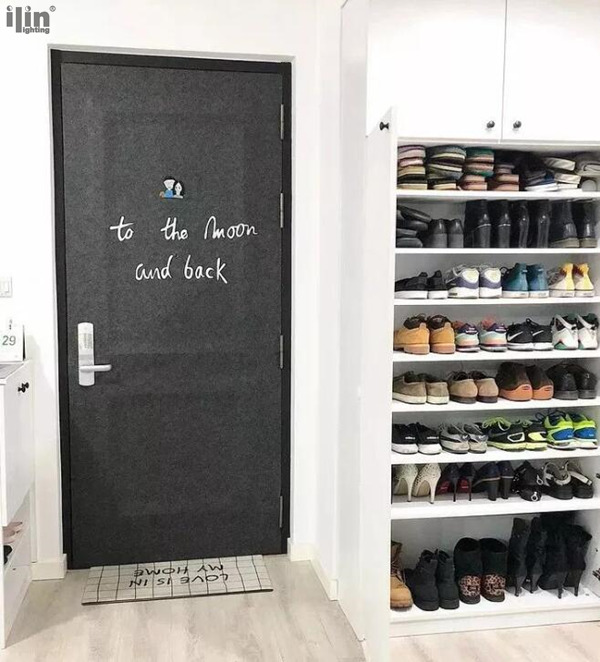 ilin®
lighting
to the moon
and back
29
LOVE IS IN
MY HOME